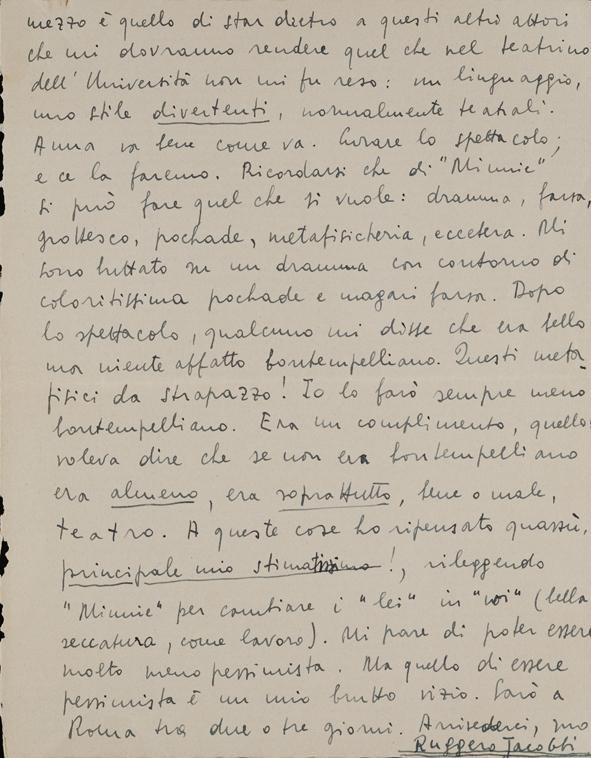 mezzo è quello di star dietro a questi altri attori
che mi dovranno rendere quel che nel teatrino
dell'Università non mi fu reso: un linguaggio,
uno stile divertenti, normalmente teatrali.
Anna va bene come va. Curare lo spettacolo;
e ce la faremo. Ricordarsi che di "Minnie"
si può fare quel che si vuole: dramma, farsa,
grottesco, pochade, metafisicheria, eccetera. Mi
sono buttato su un dramma con contorno di
coloritissima pochade e magari farsa. Dopo
lo spettacolo, qualcuno mi disse che era bello
ma niente affatto bontempelliano. Questi meta-
fisici da strapazzo! Io lo farò sempre meno
bontempelliano. Era un complimento, quello:
voleva dire che se non era bontempelliano
era almeno, era soprattutto, bene o male,
teatro. A queste cose ho ripensato quassù,
principale mio stimatissimo!, rileggendo
"Minnie" per cambiare i "lei" in "voi" (bella
seccatura, come lavoro). Mi pare di poter essere
molto meno pessimista. Ma quello di essere
pessimista è un mio brutto vizio. Sarò a
Roma tra due o tre giorni. Arrivederci, suo
Ruggero Jacobbi